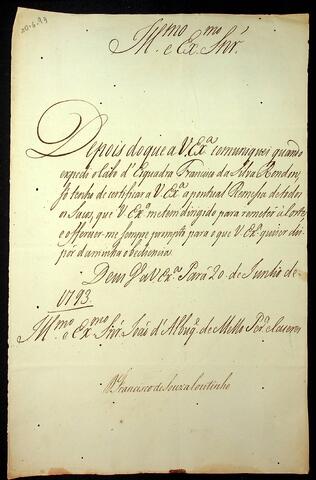 20-6-93
Ill.mo e Ex.mo Snr.
Depois do que a V. Ex.ª comuniquei quando
expedi o Cabo d'Esquadra Francisco da Silva Rondon,
só tenho de certificar a V. Ex.ª a pontual Remessa de todos
os Sacos, que V. Ex.ª me tem dirigido para remeter á Corte,
e offerecer-me sempre prompto para o que V. Ex.ª quizer dis-
pôr da minha obediencia.
Deos G.e a V. Ex.ª Pará 20 de Junho de
1793.
Ill.mo e Ex.mo Snr. João d'Albuq.e de Mello Per.ª e Caceres
D. Francisco de Souza Coutinho